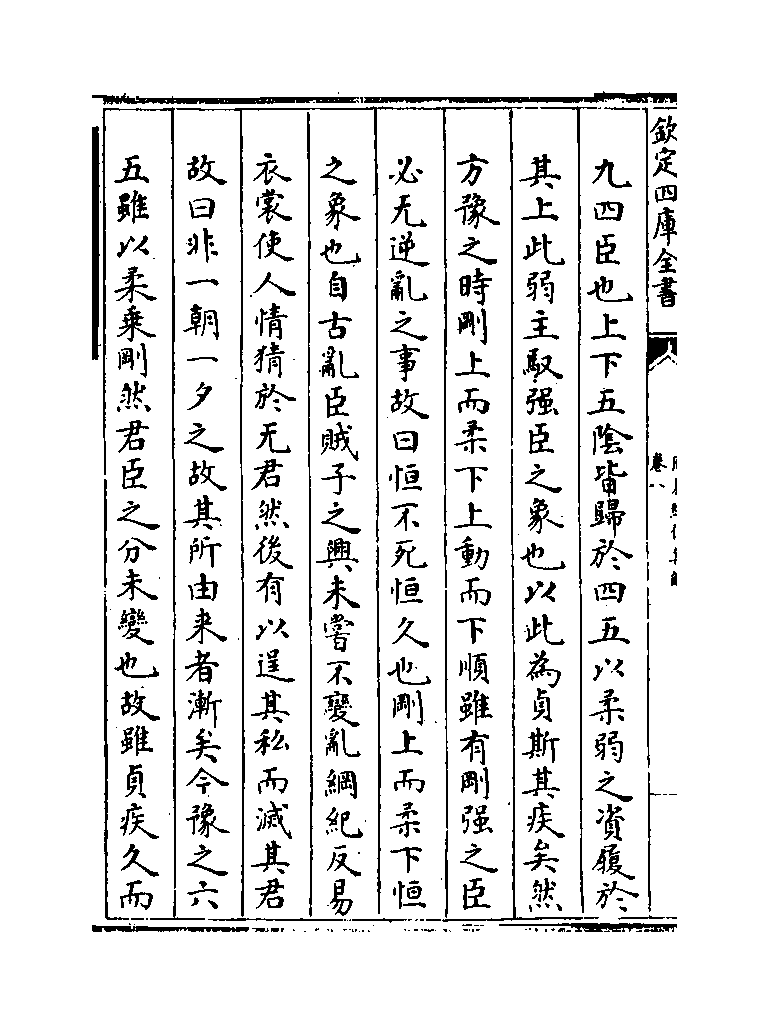 欽定四庫全書
卷八
九四臣也上下五陰皆歸於四五以柔弱之資履於
其上此弱主馭强臣之象也以此為貞斯其疾矣然
方豫之時剛上而柔下上動而下順雖有剛强之臣
必无逆亂之事故曰恒不死恒久也剛上而柔下恒
之象也自古亂臣賊子之興未嘗不變亂綱紀反易
衣裳使人情猜於无君然後有以逞其私而滅其君
故曰非一朝一夕之故其所由来者漸矣今豫之六
五雖以柔乗剛然君臣之分未變也故雖貞疾久而